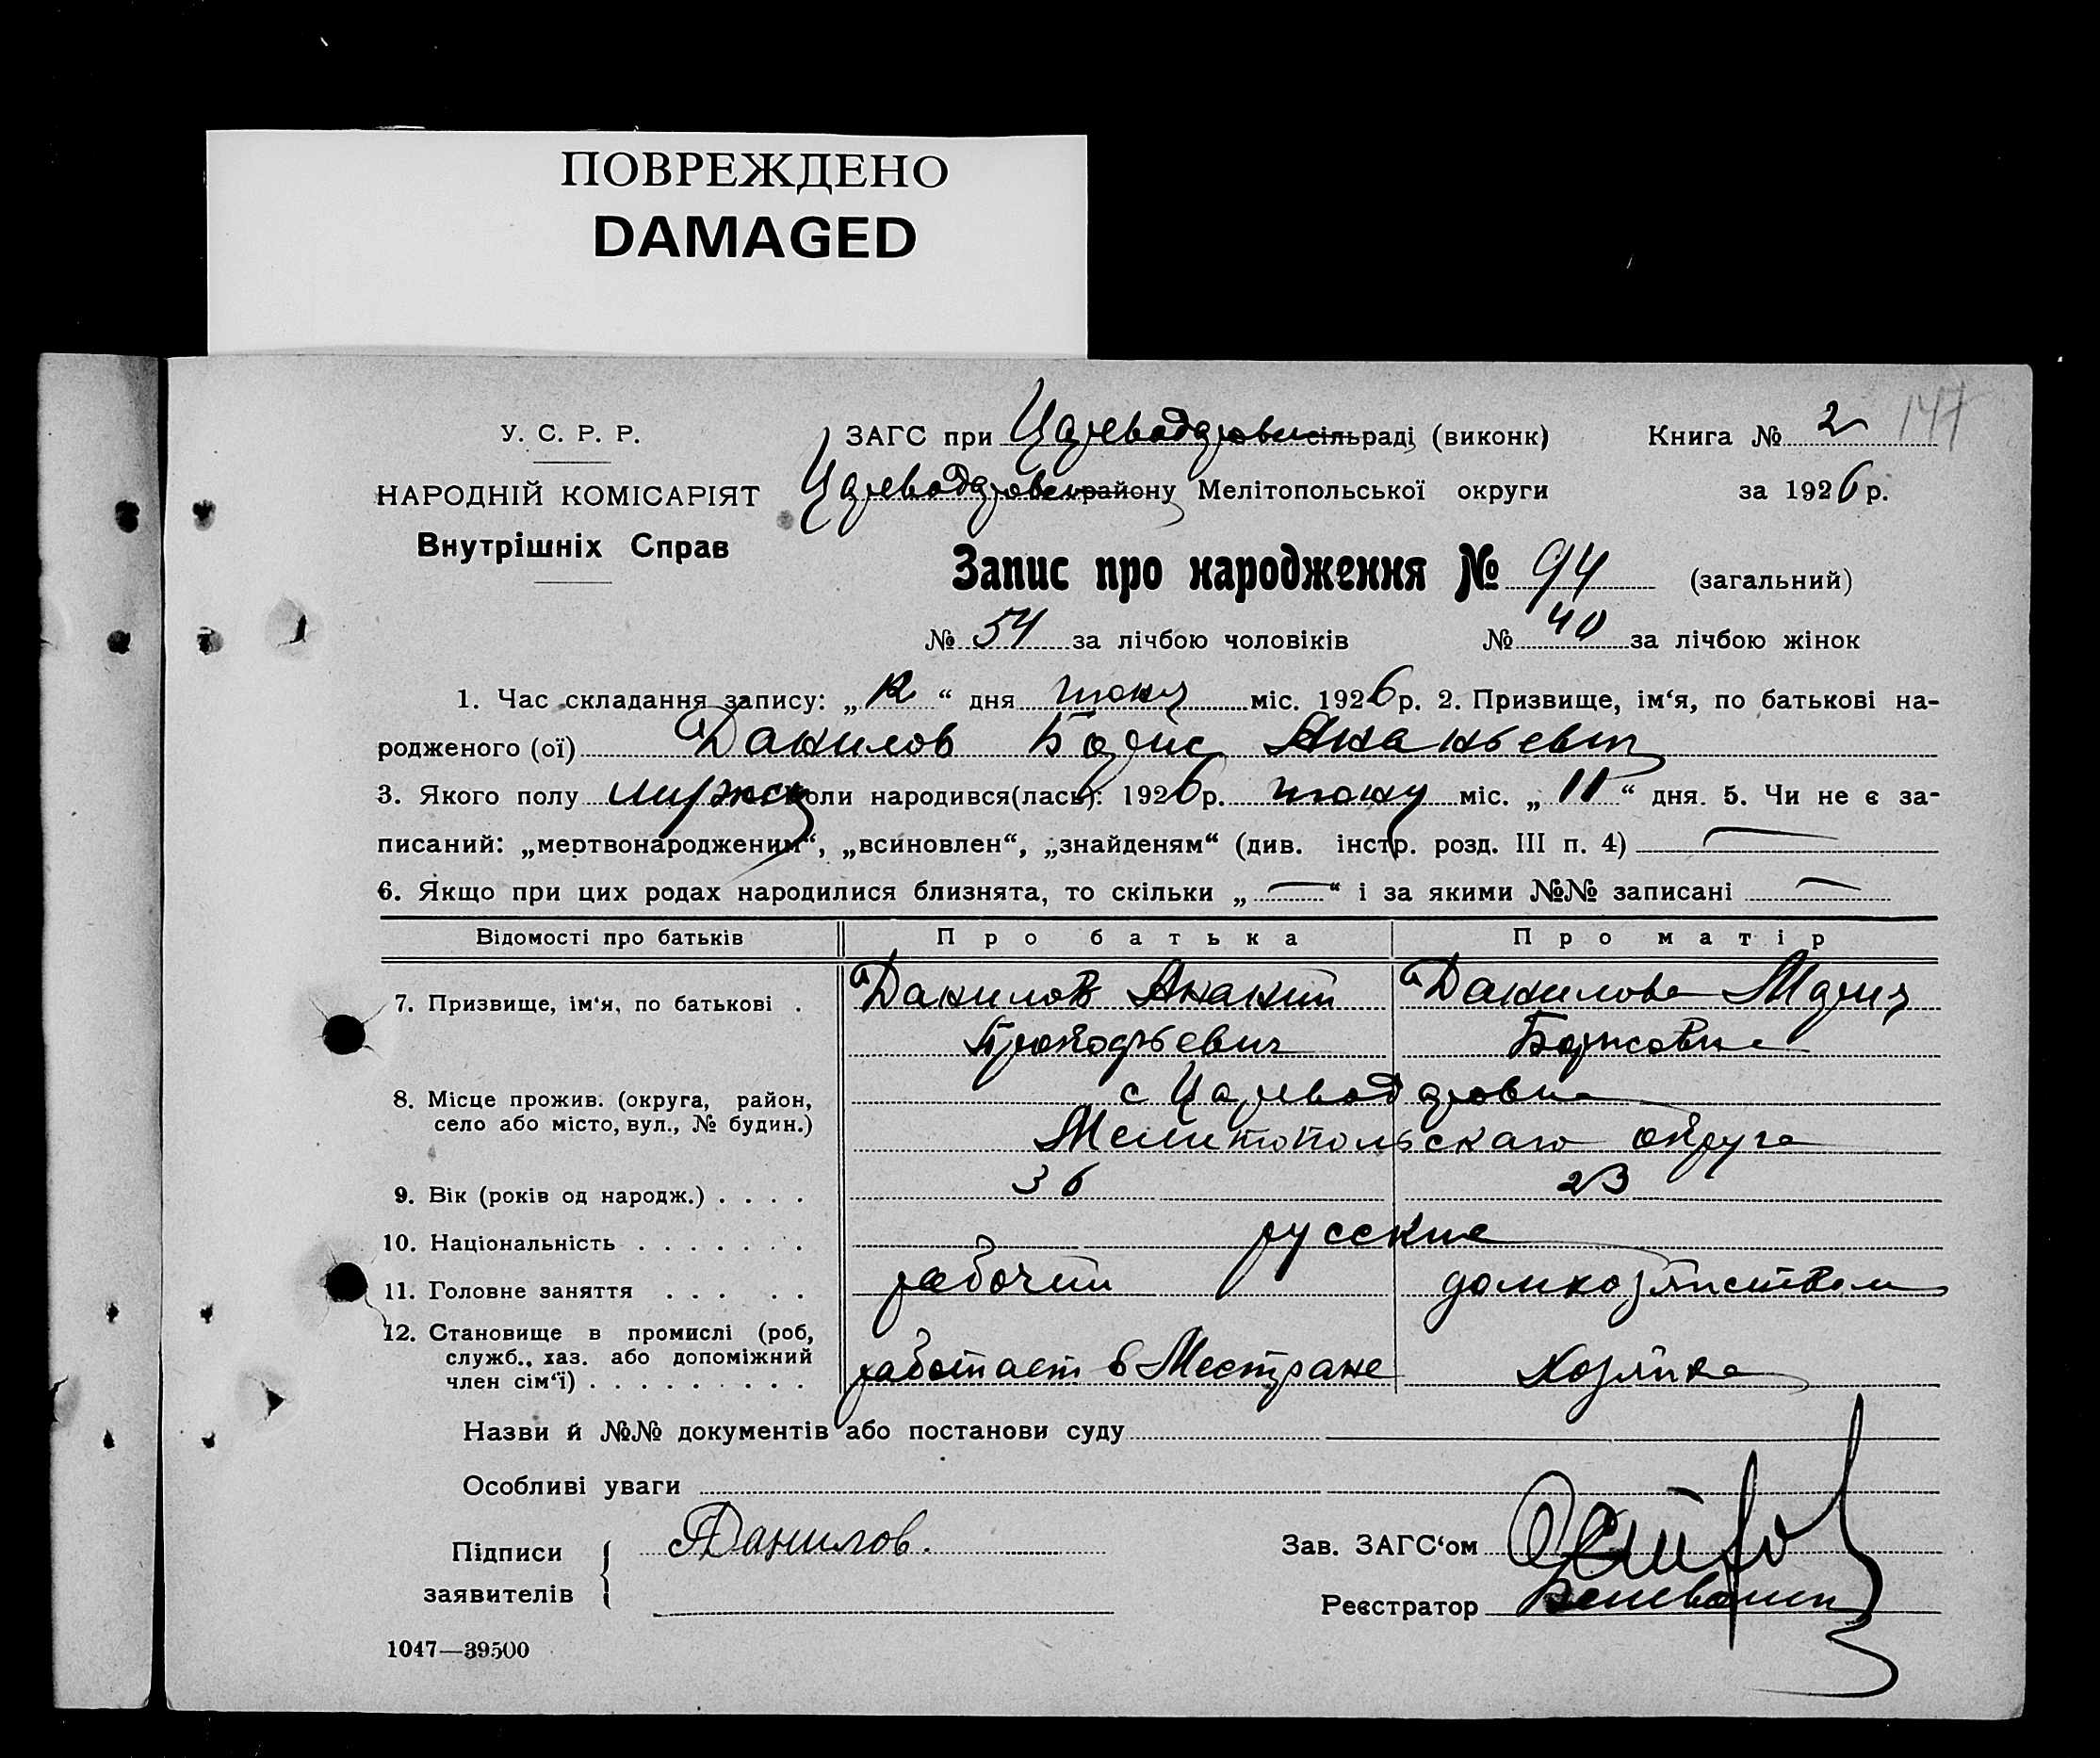 ПОВРЕЖДЕНО
DAMAGED
У. С. Р. Р.
НАРОДНІЙ КОМІСАРІЯТ
Внутрішніх Справ
ЗАГС при Царевадаровск сільраді (виконк) Книга № 2 147
Царевадаровск району Мелітопольської округи за 1926 р.
Запис про народження № 94 (загальний)
№ 54 за лічбою чоловіків № 40 за лічбою жінок
1. Час складання запису: „ 12 “ дня июня міс. 1926 р. 2. Призвище, ім‘я, по батькові на-
родженого (ої) Данилов Борис Ананьевич
3. Якого полу мужск коли народився(лась): 1926 р. июня міс. „ 11 “ дня. 5. Чи не є за-
писаний: „мертвонародженим“, „всиновлен“, „знайденям“ (див. інстр. розд. III п. 4) —
6. Якщо при цих родах народилися близнята, то скільки „ — “ і за якими №№ записані —
Відомості про батьків Про батька Про матір
7. Призвище, ім‘я, по батькові . Данилов Ананий Данилова Мария
Прокофьевич Борисовна
8. Місце прожив. (округа, район, с Царевадаровка
село або місто, вул., № будин.) Мелитопольскаго округа
9. Вік (років од народж.) . . . . 36 23
10. Національність . . . . . . . русские
11. Головне заняття . . . . . рабочий
12. Становище в промислі (роб,
служб., хаз. або допоміжний работает в хозяйка
член сім‘ї) . . . . . . . . .
Назви й №№ документів або постанови суду
Особливі уваги
Підписи Данилов. Зав. ЗАГС‘ом
заявителів Реєстратор
1047—39500